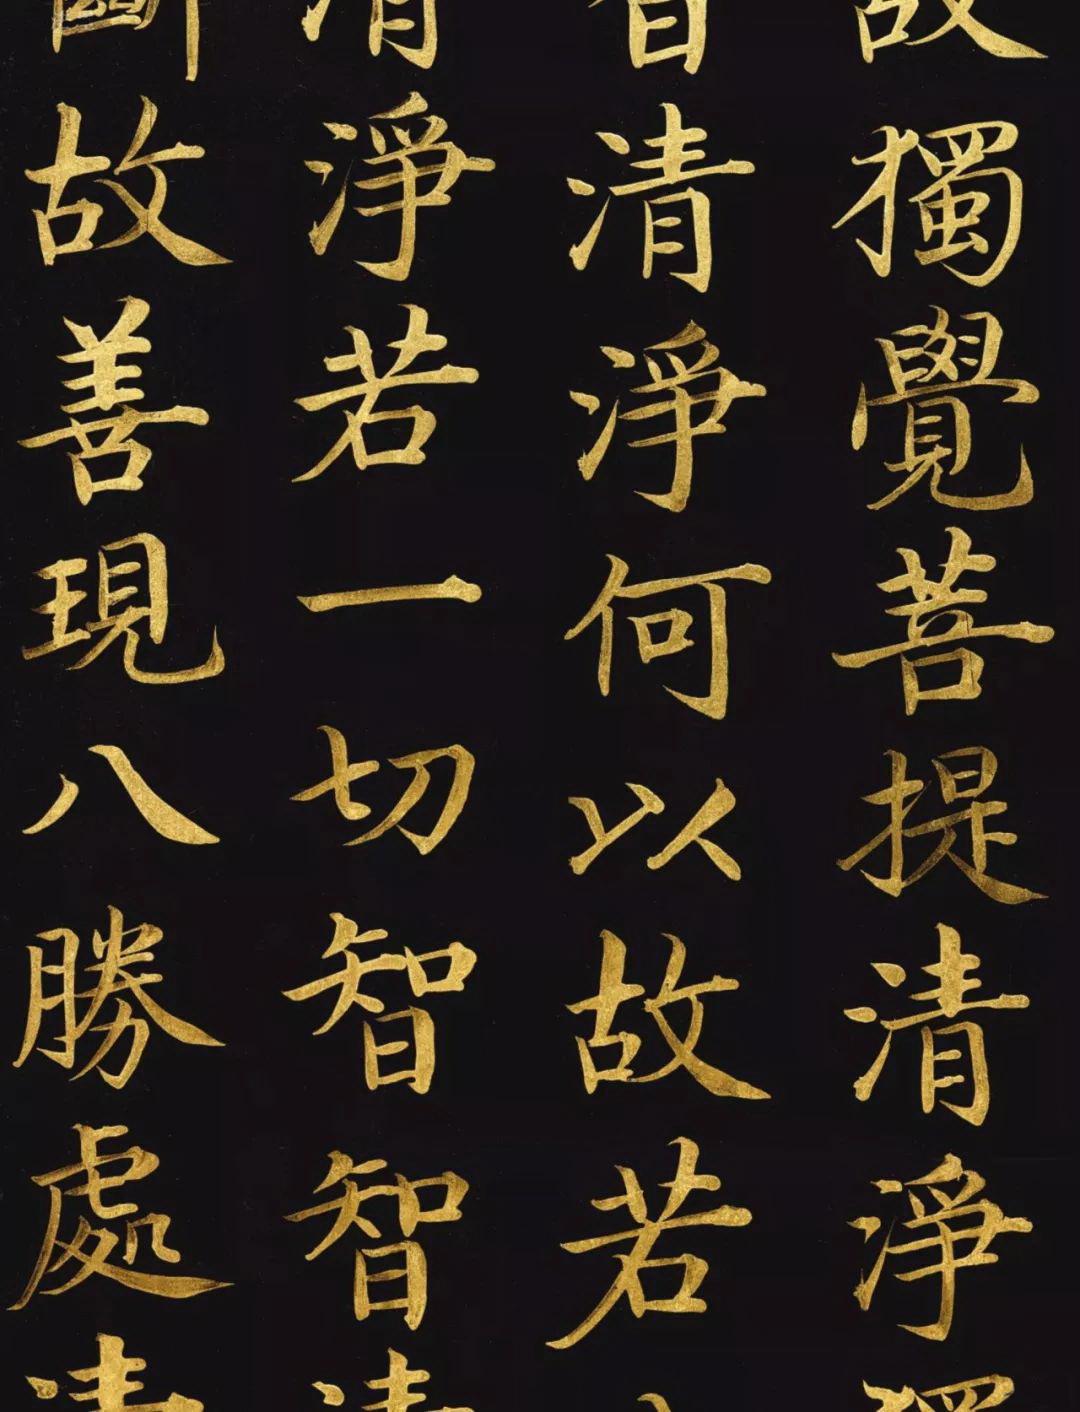 故獨覺菩提清淨
清淨何以故若
清淨若一切智智
斷故善現八勝處